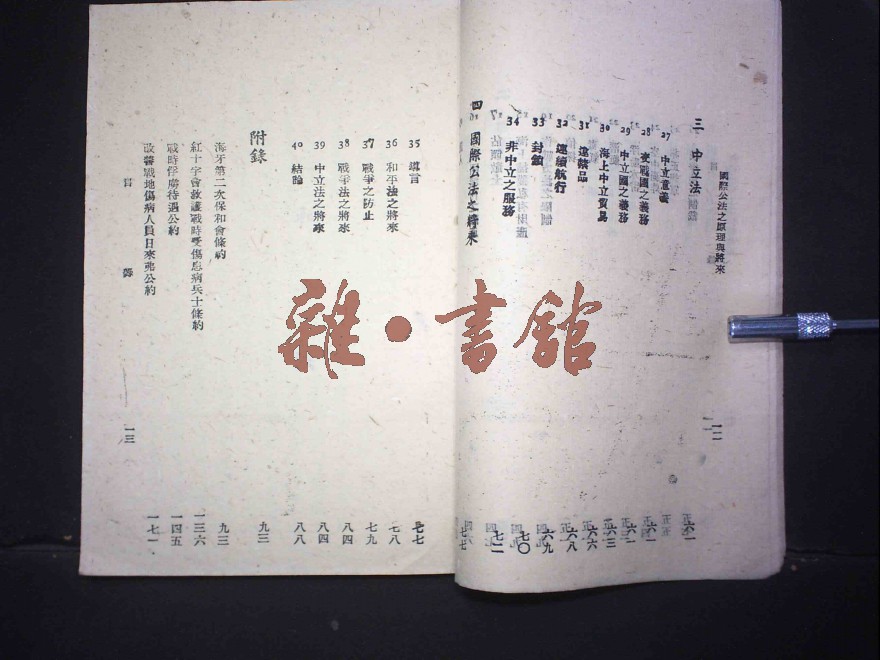 國際公法之原理與將來
三 中立法 六一
27 中立意義 六一
28 交戰國之義務 六一
29 中立國之義務 六一
30 海上中立貿易 六三
31 違禁品 六六
32 連續航行 六八
33 封鎖 六九
34 非中立之服務 七〇
四 國際公法之將來 七七
一二
35 導言 七七
36 和平法之將來 七八
37 戰爭之防止 七九
38 戰爭法之將來 八四
39 中立法之將來 八四
40 結論 八八
附錄 九三
海牙第二次保和會條約 九三
紅十字會救護戰時受傷患病兵士條約 一三六
戰時俘虜待遇公約 一四五
改善戰地傷病人員日來弗公約 一七一
目 錄
一三
雜·書館